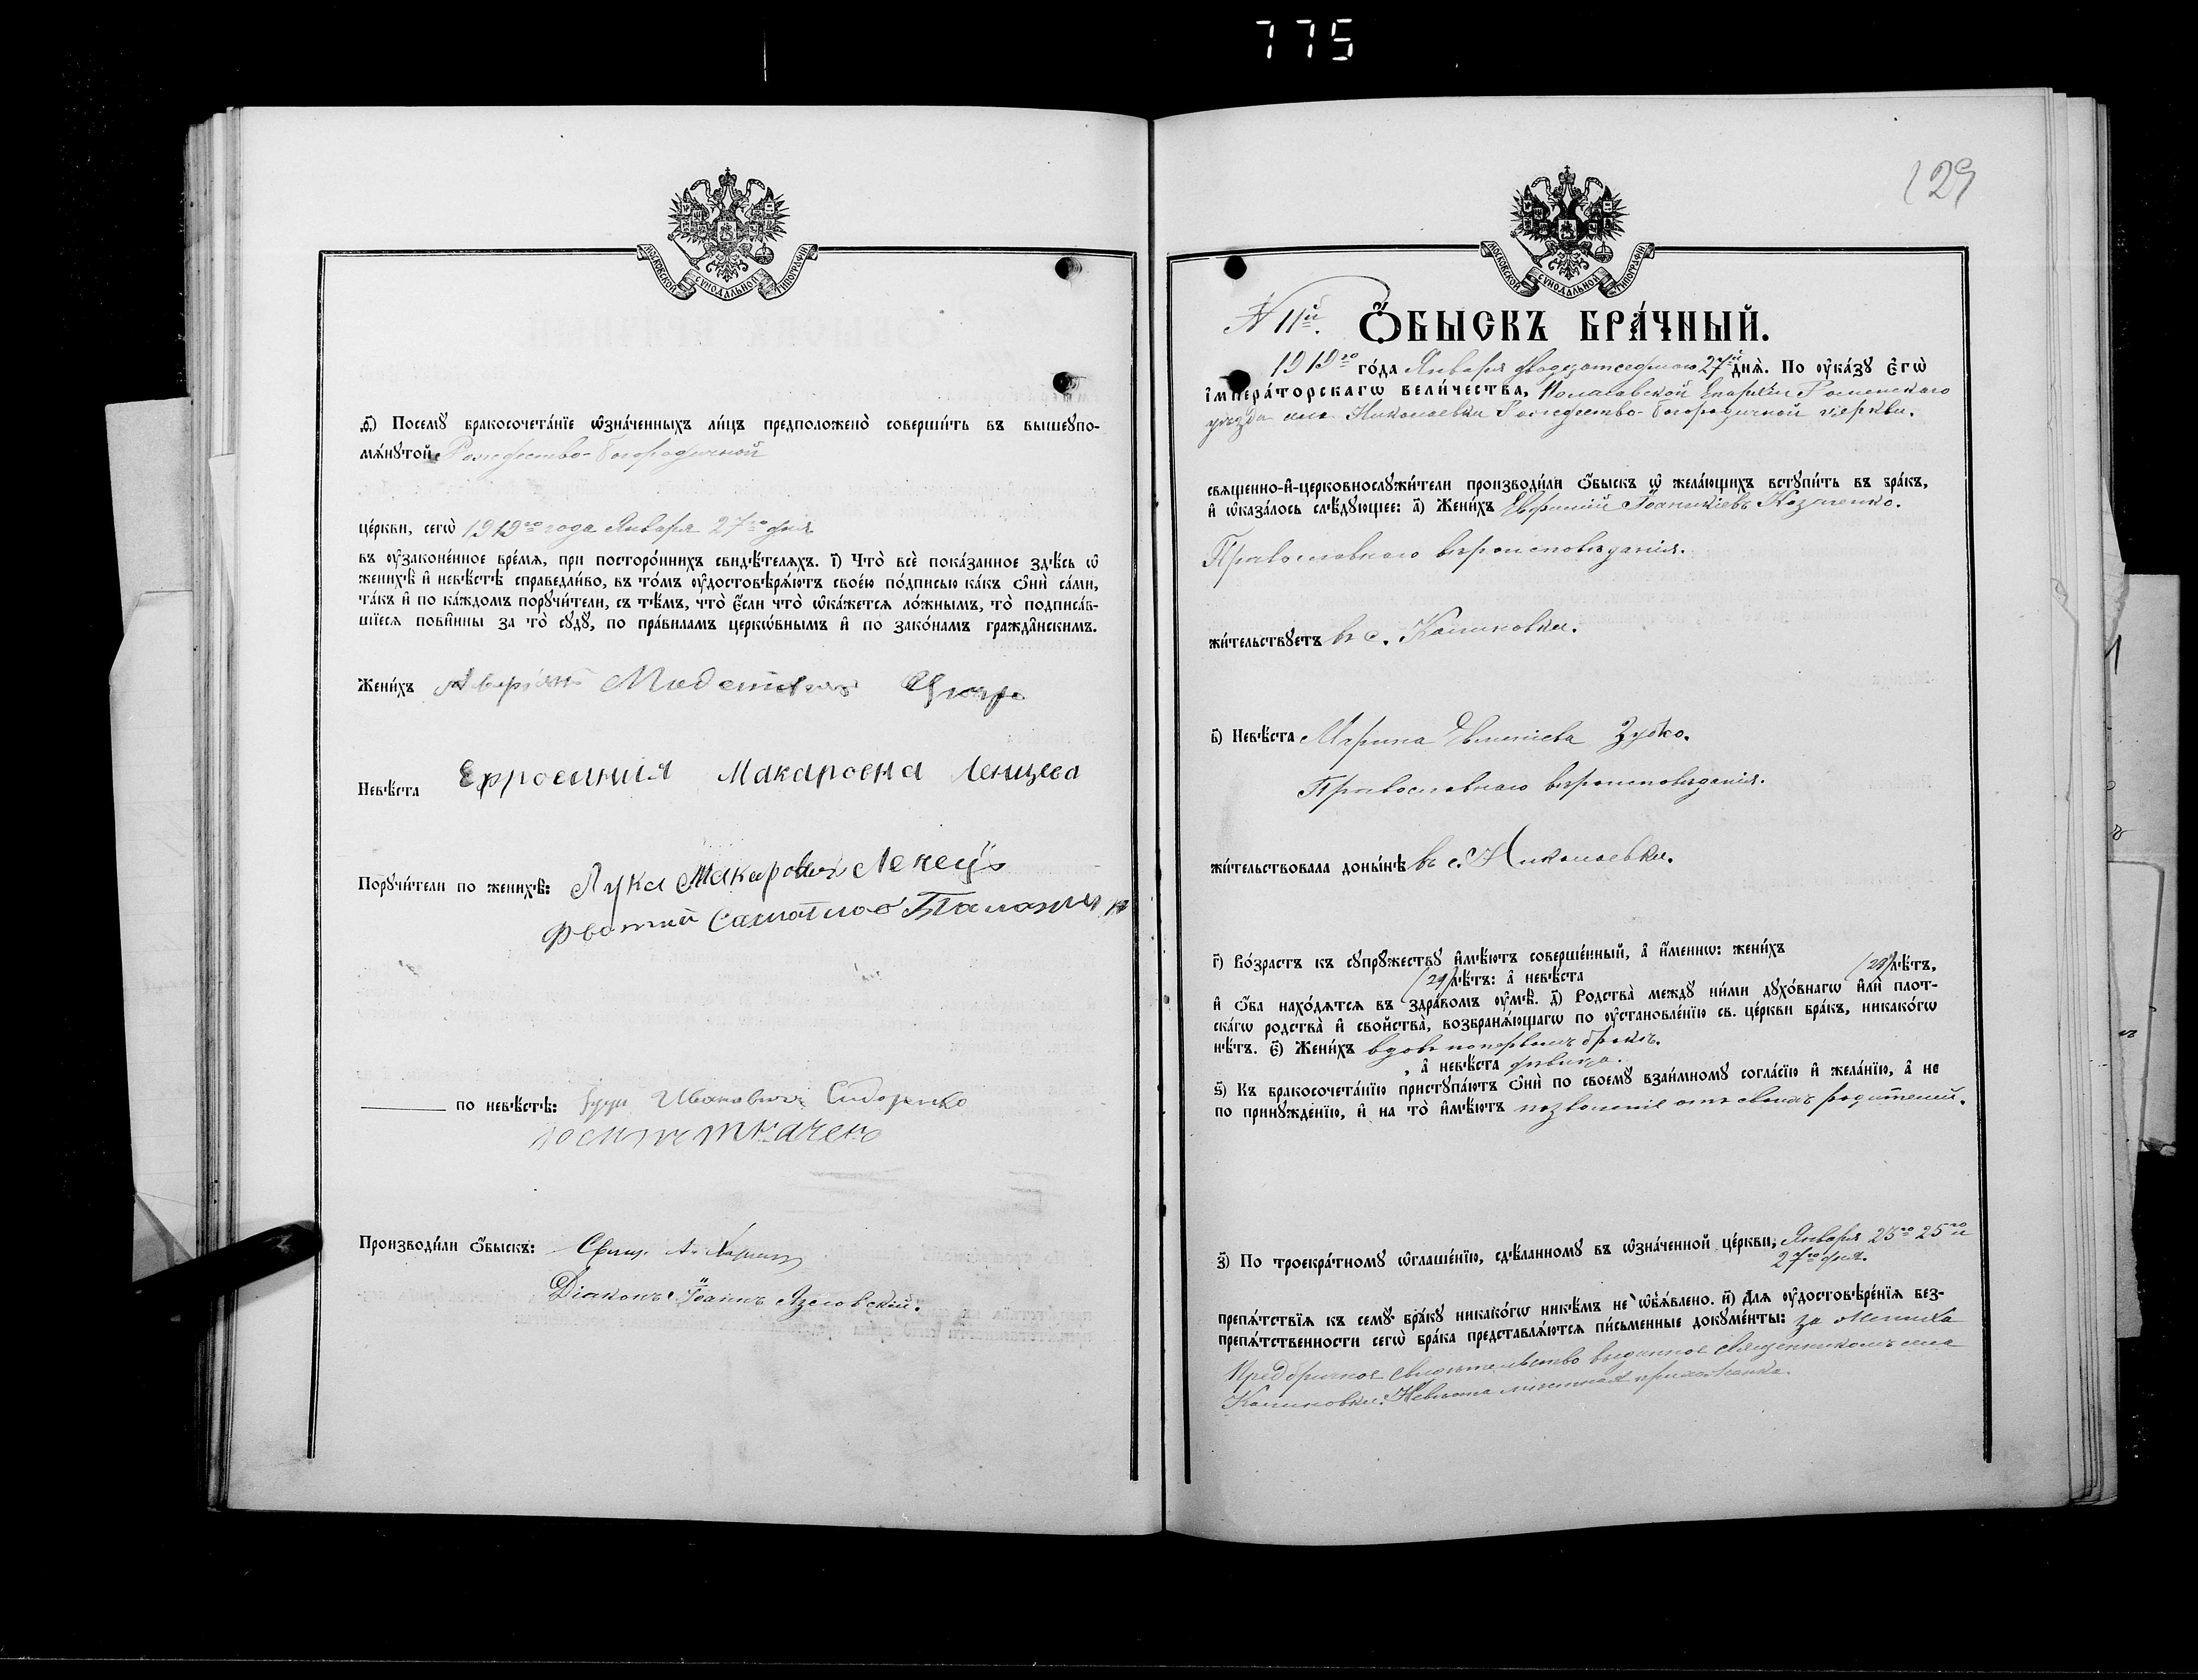 775
МОСКОВСКОЙ СУНОДАЛЬНОЙ ТИПОГРАФІИ
ѳ҃) Посемꙋ бракосочета́нїе ѡ҆зна́ченныхъ ли́цъ предположено̀ соверши́ть въ вышеупо-
мѧ́нꙋтой Рождество-Богородичной
це́ркви, сегѡ̀ 1919го года Января 27го дня
въ ᲂу҆законе́нное вре́мѧ, при посторо́ннихъ свидѣ́телѧхъ. і҃) Что̀ всѐ пока́занное здѣ́сь ѡ҆
женихѣ̀ и҆ невѣ́стѣ справедли́во, въ то́мъ ᲂу҆достовѣрѧ́ютъ свое́ю по́дписью ка́къ ѻ҆нѝ са́ми,
та́къ и҆ по ка́ждомъ порꙋчи́тели, съ тѣ́мъ, что̀ є҆́сли что̀ ѡ҆ка́жетсѧ ло́жнымъ, то̀ подписа́в-
шїесѧ пови́нны за то̀ сꙋдꙋ̀, по пра́виламъ церкѡ́внымъ и҆ по зако́намъ гражда̑нскимъ.
Жени́хъ
Невѣ́ста Ефросиния Макаровна Ленцева
Порꙋчи́тели по женихѣ̀: Лука Макаровичъ Ленецъ
по невѣ́стѣ: Ивановичъ Сидоренко
Производи́ли ѻ҆́быскъ: Свящ. А.
Діаконъ Іоаннъ Язловскій.
129
МОСКОВСКОЙ СУНОДАЛЬНОЙ ТИПОГРАФІИ
N 11й. Ѻ҆́БЫСКЪ БРА́ЧНЫЙ.
1919го го́да Января двадцатседмого 27й днѧ̀. По ᲂу҆ка́зꙋ Є҆гѡ̀
І҆мпера́торскагѡ Вели́чества, Полтавской Епархіи Роменскаго
уѣзда села Николаевки Рождество-Богородичной церкви.
свѧщенно-и҆-церковнослꙋжи́тели производи́ли ѻ҆́быскъ ѡ҆ жела́ющихъ встꙋпи́ть въ бра́къ,
и҆ ѡ҆каза́лось слѣ́дꙋющее: а҃) Жени́хъ Евфимій Іоаникіевъ Козченко.
Православнаго вѣроисповѣданія.
жи́тельствꙋетъ въ с. Калиновки.
в҃) Невѣ́ста Марина Евменіева Зубко.
Православнаго вѣроисповѣданія.
жи́тельствовала доны́нѣ въ с. Николаевки.
г҃) Во́зрастъ къ сꙋпрꙋ́жествꙋ и҆мѣ́ютъ соверше́нный, а҆ и҆́меннѡ: жени́хъ (29) лѣ́тъ,
(29) лѣ́тъ: а҆ невѣ́ста
и҆ ѻ҆́ба нахо́дѧтсѧ въ здра́вомъ ᲂу҆мѣ̀. д҃) Родства̀ междꙋ̀ ни́ми дꙋхо́внагѡ и҆лѝ плот-
ска́гѡ родства̀ и҆ сво́йства, возбранѧ́ющагѡ по ᲂу҆становле́нїю св. це́ркви бра́къ, никако́гѡ
нѣ́тъ. є҃) Жени́хъ вдовъ по первымъ бракѣ.
, а҆ невѣ́ста дѣвица.
ѕ҃) Къ бракосочета́нїю пристꙋпа́ютъ ѻ҆нѝ по своемꙋ̀ взаи́мномꙋ согла́сїю и҆ жела́нїю, а҆ не
по принꙋжде́нїю, и҆ на то̀ и҆мѣ́ютъ позволенія отъ своихъ родителей.
з҃) По троекра́тномꙋ ѡ҆глаше́нїю, сдѣ́ланномꙋ въ ѡ҆зна́ченной це́ркви, Января 23го 25го и
27го дня.
препѧ́тствїѧ къ семꙋ̀ бра́кꙋ никако́гѡ никѣ́мъ не ѡ҆б̾ѧ́влено. и҃) Длѧ̀ ᲂу҆достовѣре́нїѧ без-
препѧ́тственности сегѡ̀ бра́ка представлѧ́ютсѧ пи́сьменные докꙋме́нты: за Жениха
Предбрачное свидѣтельство выданное священникомъ села
Калиновки. Невѣста мѣстная прихожанка.